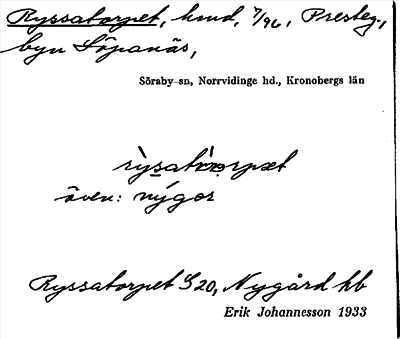 Ryssatorpet, hmd, 7/96, Presteg.,
byn Löpanäs,
Söraby sn, Norrvidinge hd., Kronobergs län
rỳsatòrpæt
även: nýgoɐ
Ryssatorpet S 20, Nygård hb
Erik Johannesson 1933